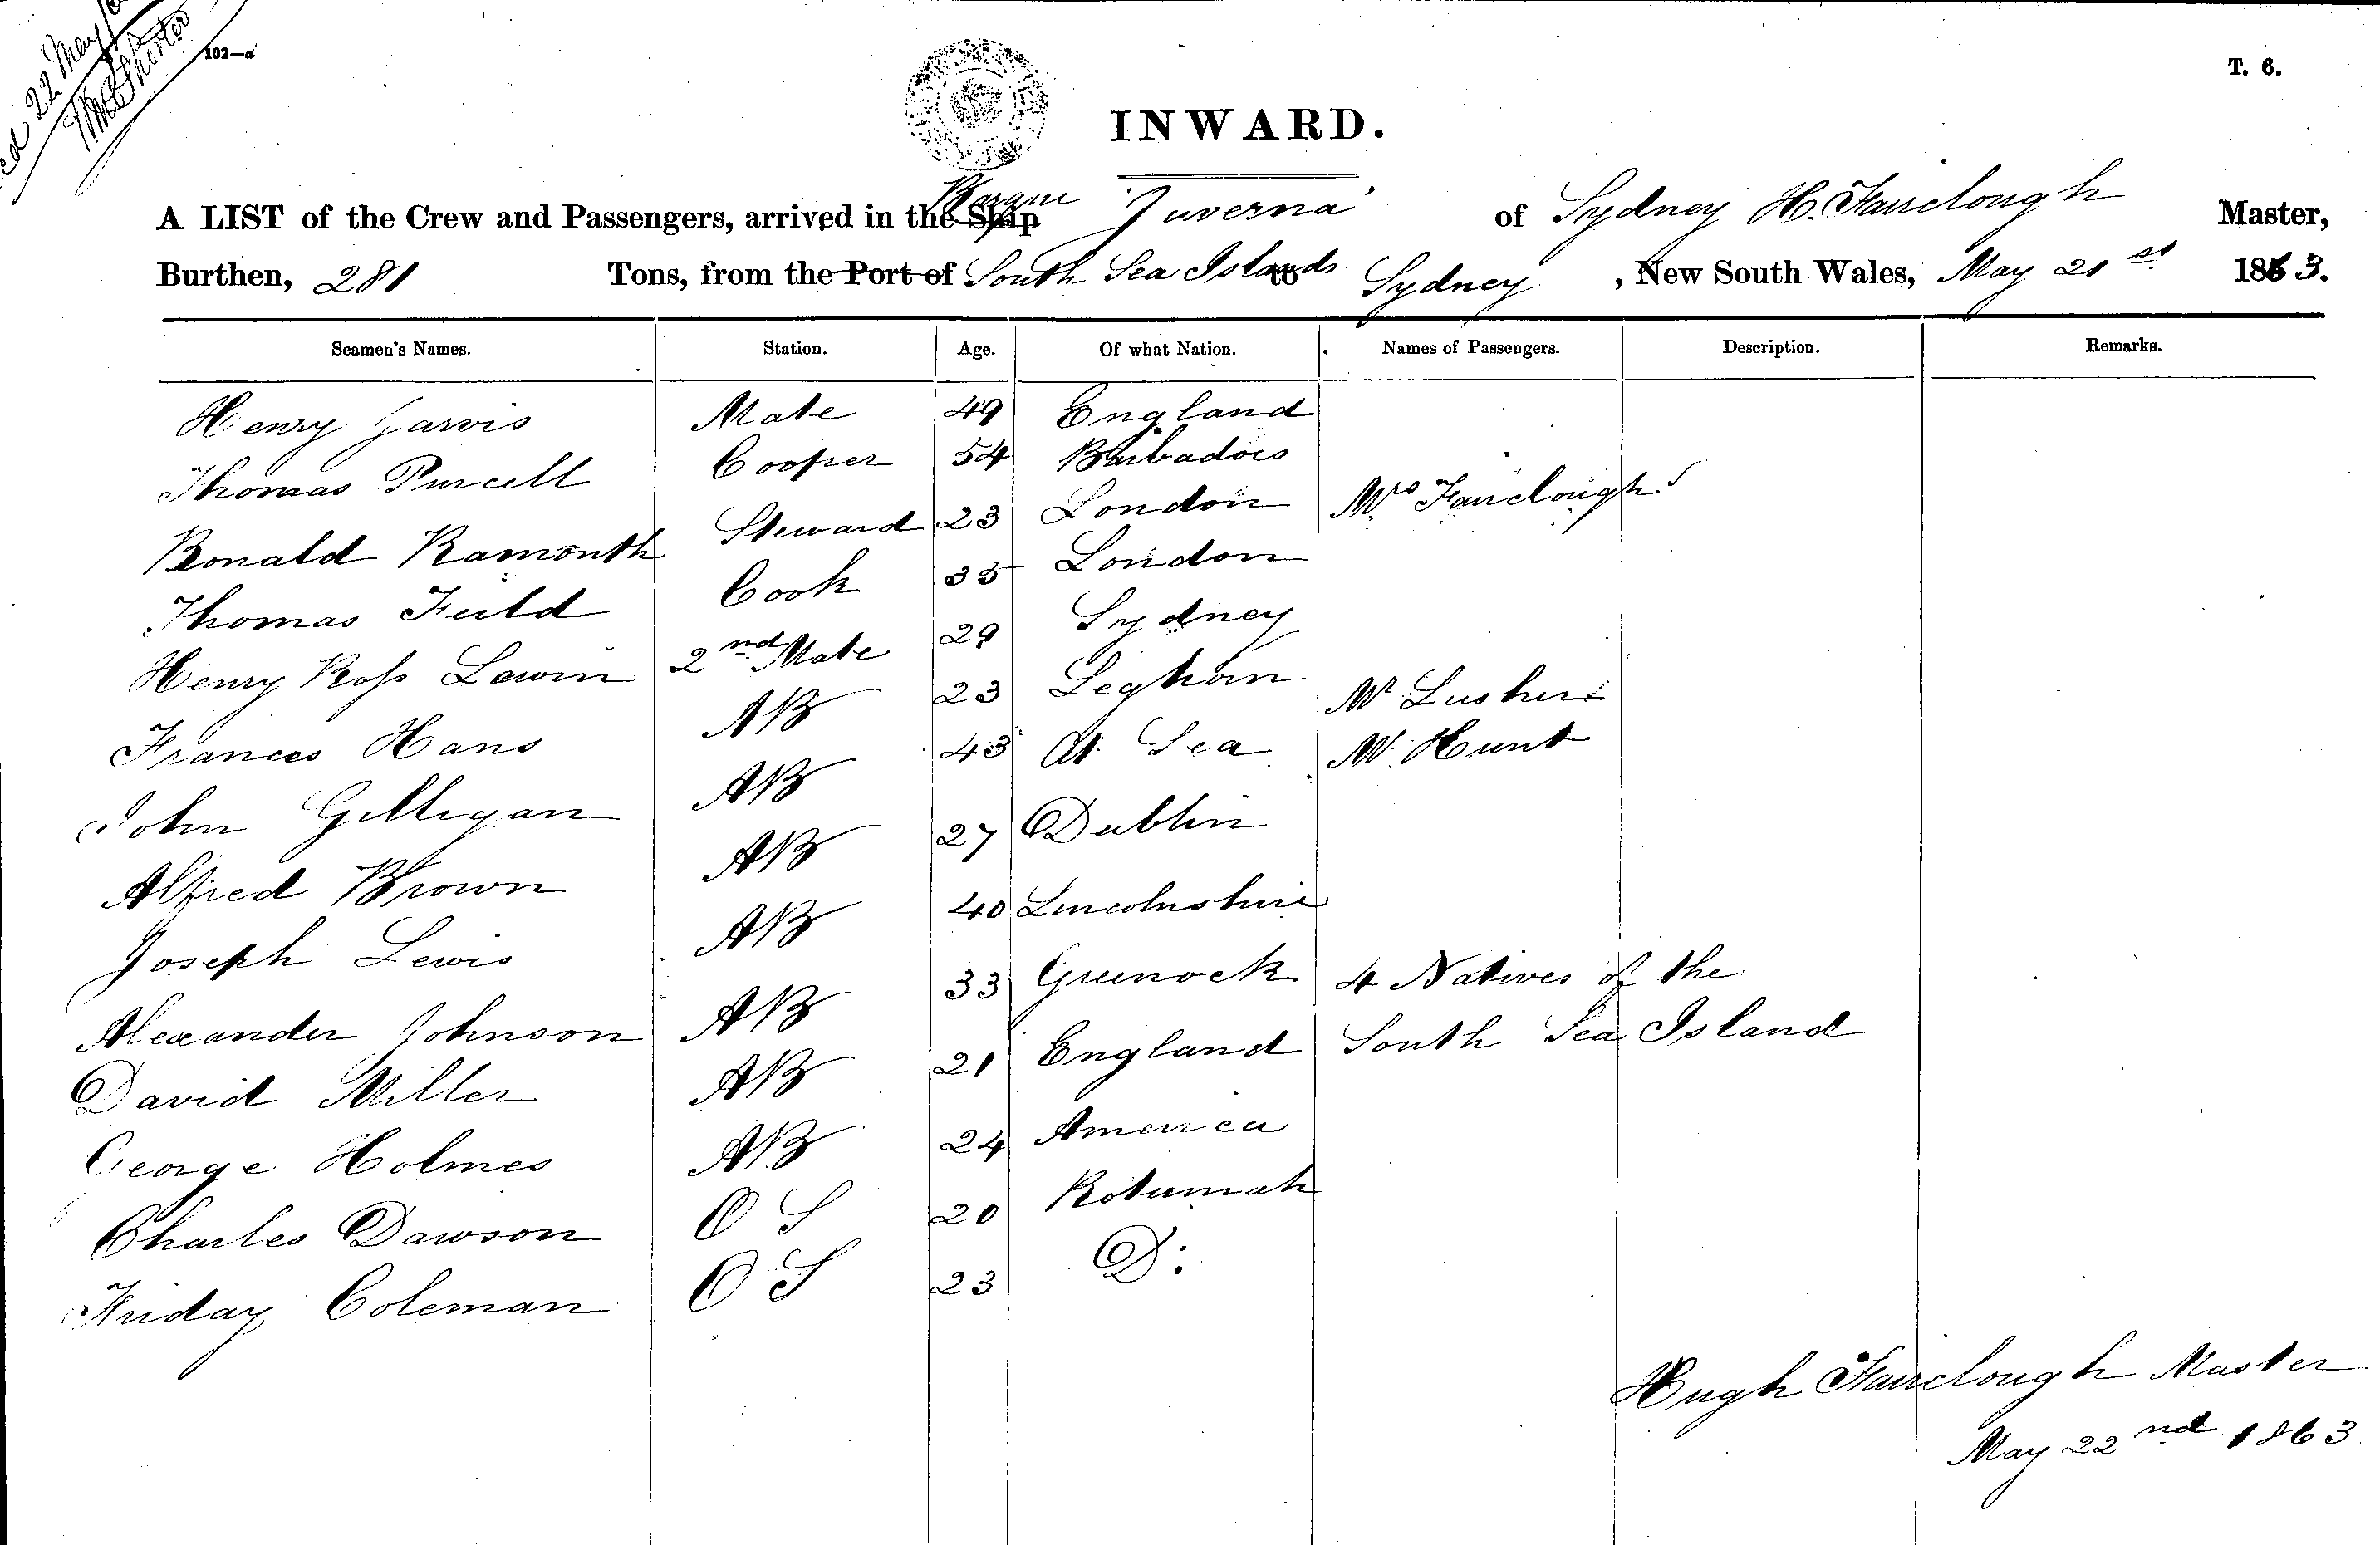 22 May
102—a
T. 6.
INWARD.
A LIST of the Crew and Passengers, arrived in the Ship Barque 'Juverna' of Sydney H. Fairclough Master,
Burthen, 281 Tons, from the Port of South Sea Islands to Sydney, New South Wales, May 21st 1863.
Seamen's Names. Station. Age. Of what Nation. Names of Passengers. Description. Remarks.
Henry Jarvis Mate 49 England
Thomas Purcell Cooper 54 Barbadoes
Ronald Ramonth Steward 23 London Mrs Fairclough
Thomas Feild Cook 35 London
Henry Ross Lewin 2nd Mate 29 Sydney
Frances Hans AB 23 Leghorn Mr Lusher
John Gilligan AB 43 At Sea Mr Hunt
Alfred Brown AB 27 Dublin
Joseph Lewis AB 40 Lincolnshire
Alexander Johnson AB 33 Greenock 4 Natives of the
David Miller AB 21 England South Sea Island
George Holmes AB 24 America
Charles Dawson OS 20 Rotumah
Friday Coleman OS 23 Do:
Hugh Fairclough Master
May 22nd 1863